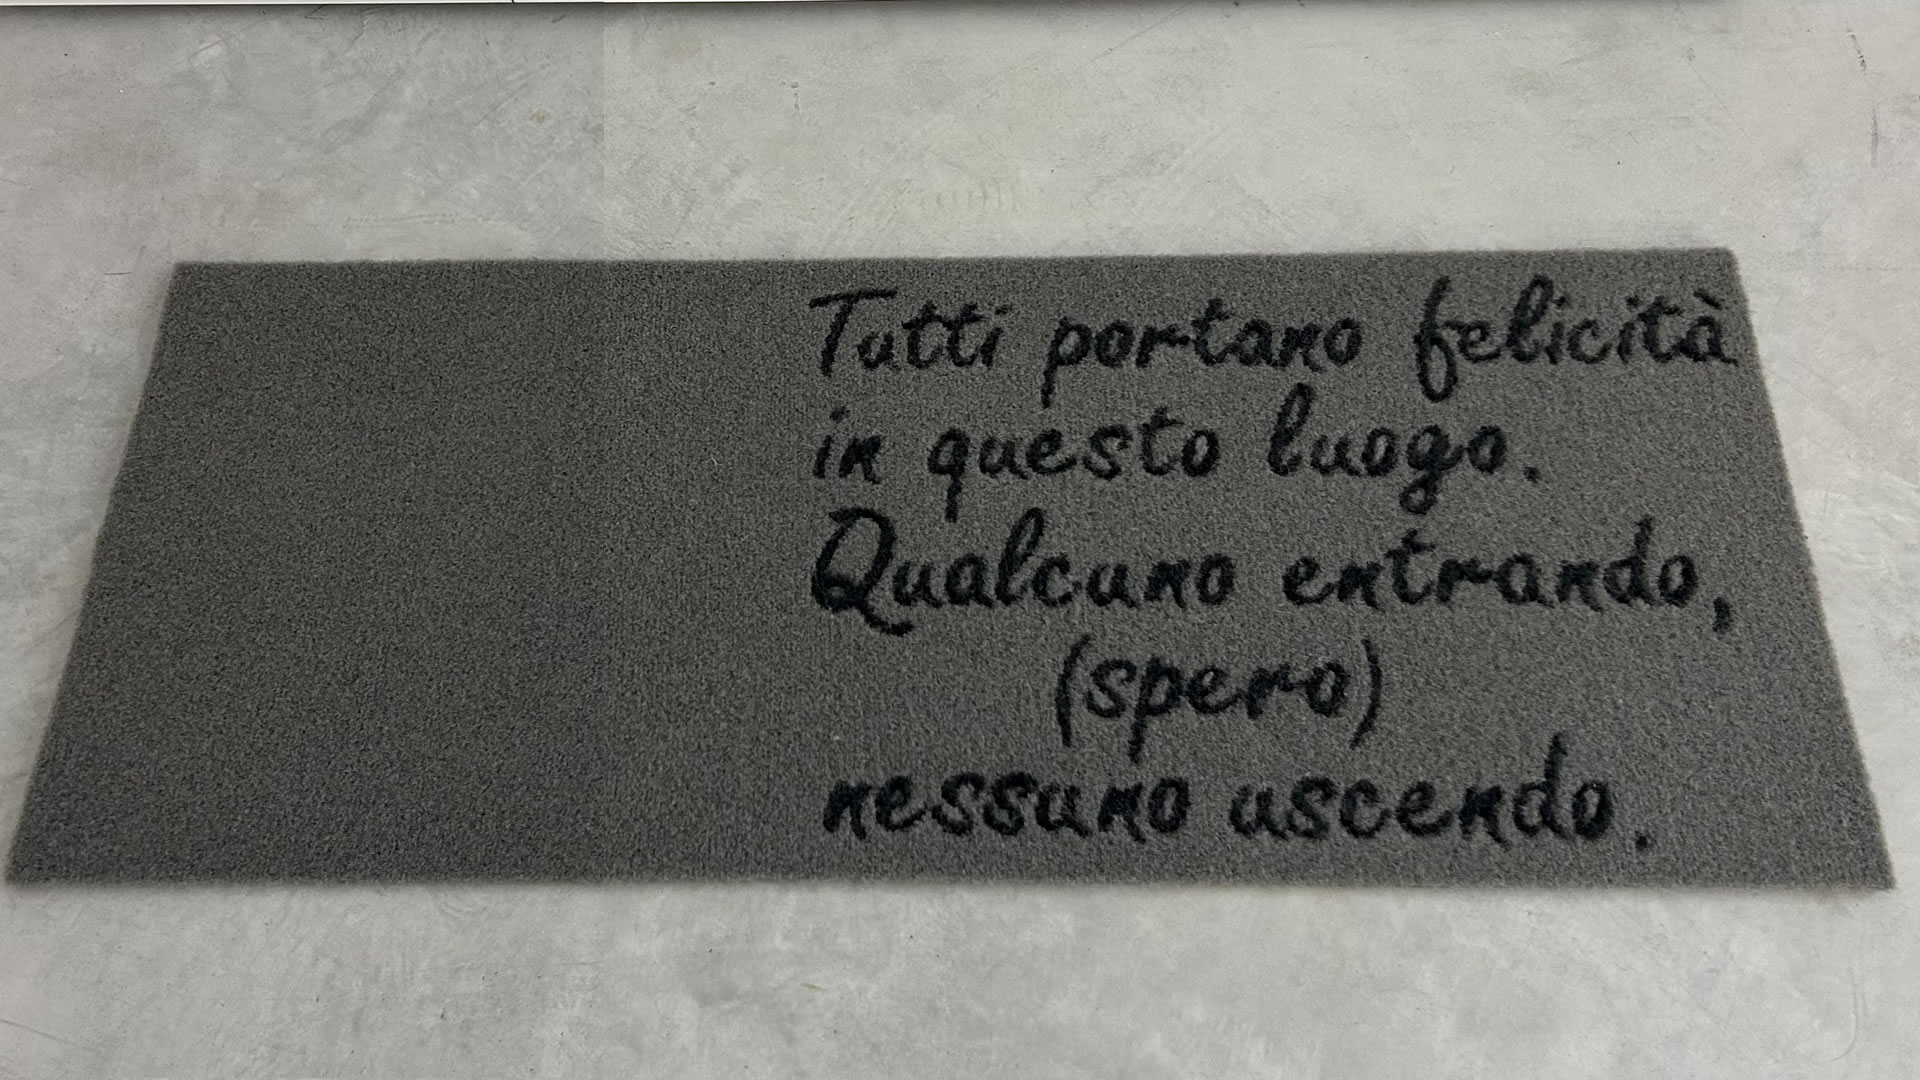 Tutti portano felicità
in questo luogo.
Qualcuno entrando,
(spero)
nessuno uscendo.